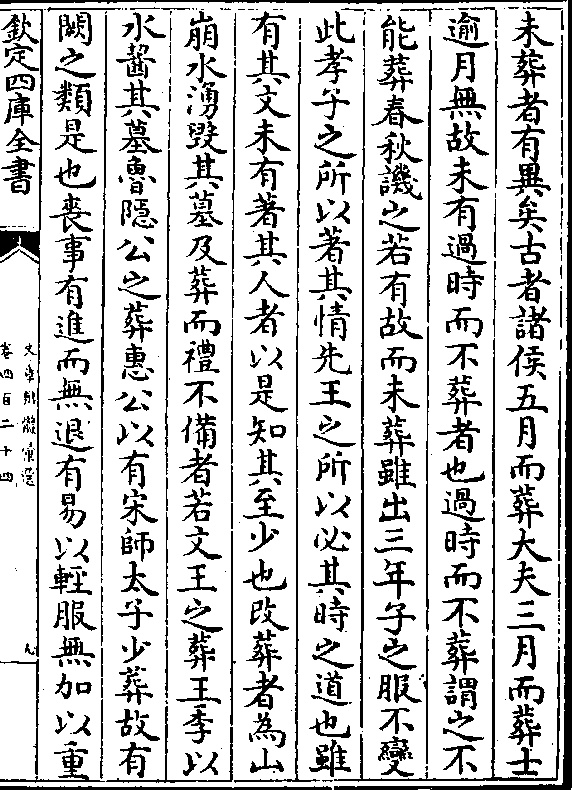 未葬者有異矣古者諸侯五月而葬大夫三月而葬士
逾月無故未有過時而不葬者也過時而不葬謂之不
能葬春秋譏之若有故而未葬雖出三年子之服不變
此孝子之所以著其情先王之所以必其時之道也雖
有其文未有著其人者以是知其至少也改葬者為山
崩水湧毁其墓及葬而禮不備者若文王之葬王季以
水齧其墓魯隱公之葬惠公以有宋師太子少葬故有
闕之類是也喪事有進而無退有易以輕服無加以重
欽定四庫全書
文章辨體彚選
卷四百二十四
九